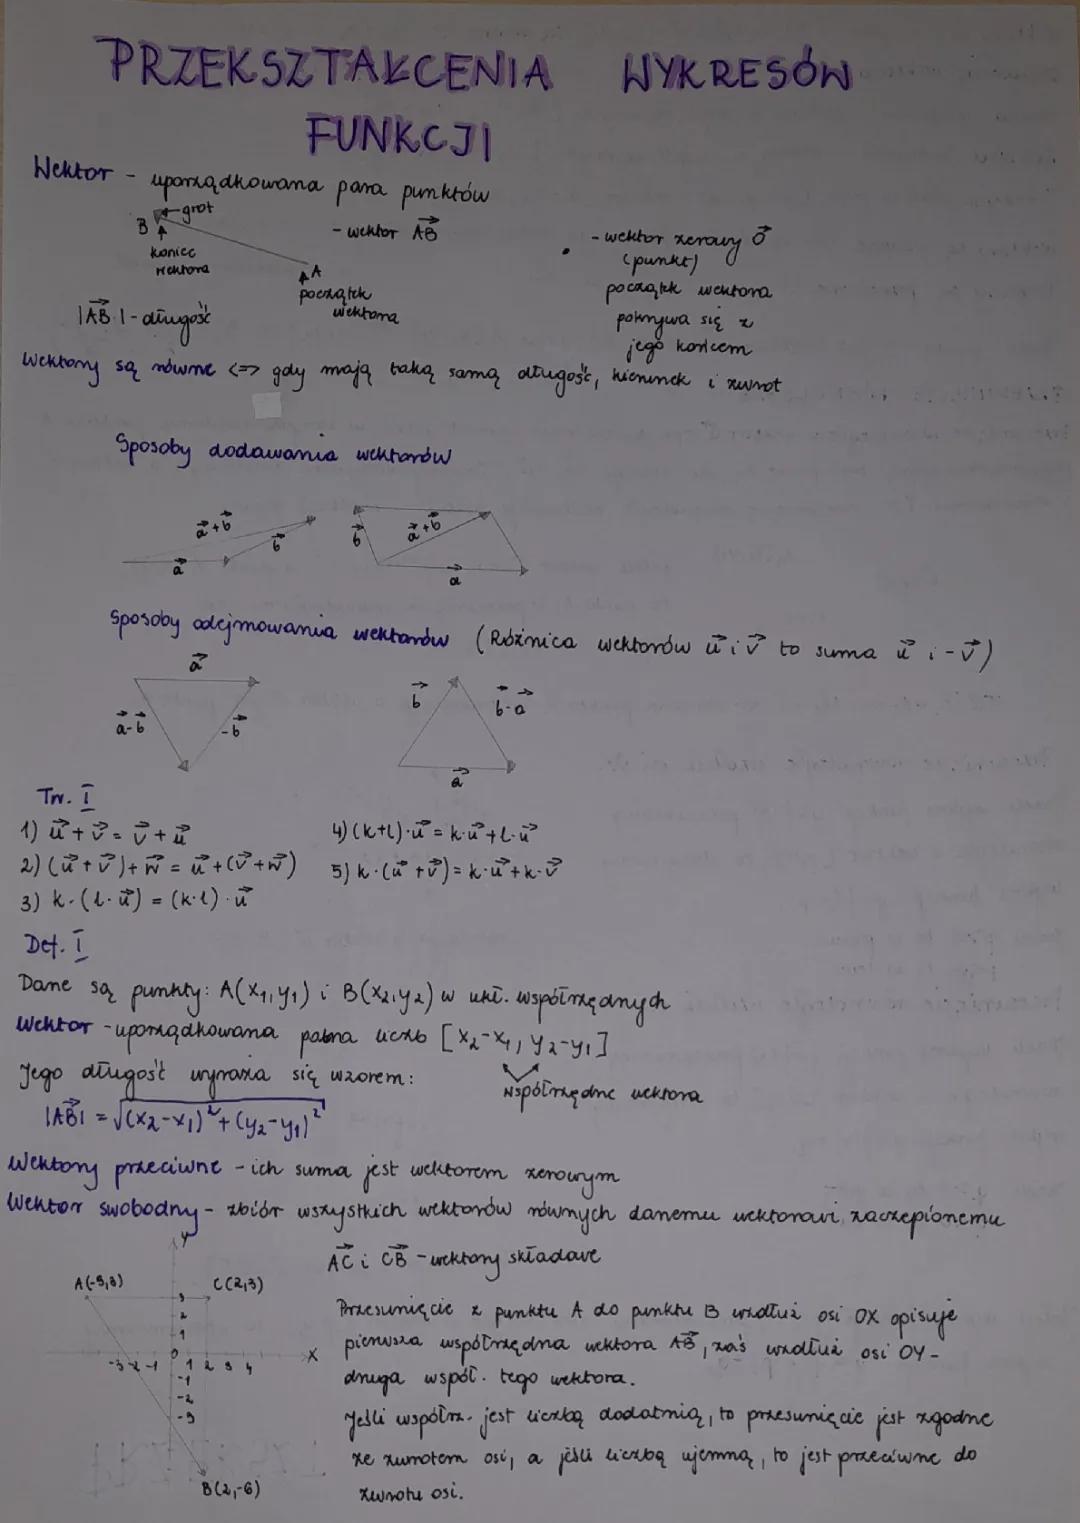 PRZEKSZTAŁCENIA WYKRESÓW
FUNKCJI
Wektor - uporządkowana para punktów
grot
B
koniec
wektora
A
początek
wektora
- wektor AB
|AB| - długość
- wektor zerowy 0
(punkt)
początek wektora
pokrywa się z
jego końcem
Wektory są równe <=> gdy mają taką samą długość, kierunek i zwrot
Sposoby dodawania wektorów
a+b
b
a
b
a+b
a
Sposoby odejmowania wektorów (Różnica wektorów u i v to suma u i -v)
a
a-b
-b
b
b-a
a
Tw. I
1) u+v = v+u
2) (u+v)+w = u+(v+w)
3) k·(l·u) = (k·l)·u
4) (k+l)·u = k·u+l·u
5) k·(u+v) = k·u+k·v
Def. I
Dane są punkty: A(x₁,y₁) i B(x₂,y₂) w ukł. współrzędnych
Wektor - uporządkowana para liczb [x₂-x₁, y₂-y₁]
Współrzędne wektora
Jego długość wyraża się wzorem:
|AB| = √(x₂-x₁)²+(y₂-y₁)²
Wektory przeciwne - ich suma jest wektorem zerowym
Wektor swobodny - zbiór wszystkich wektorów równych danemu wektorowi zaczepionemu
Y
A(-5,3)
C(2,3)
3
2
1
-3 -2 -1 0 1 2 3 4 X
-1
-2
-3
B(2,-6)
AC i CB - wektory składave
Przesunięcie z punktu A do punktu B wzdłuż osi OX opisuje
pierwsza współrzędna wektora AB, zaś wzdłuż osi OY -
druga współ. tego wektora.
Jeśli współrz. jest liczbą dodatnią, to przesunięcie jest zgodne
ze zwrotem osi, a jeśli liczbą ujemną, to jest przeciwne do
zwrotu osi.